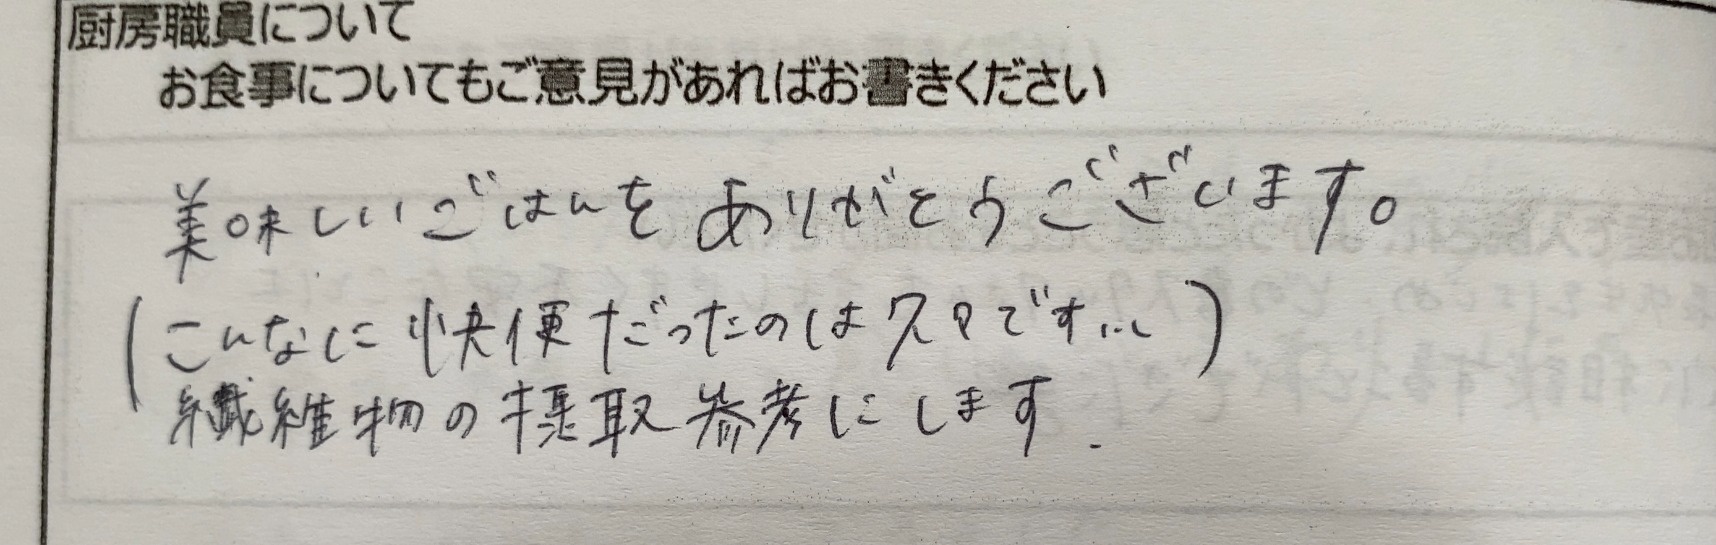 厨房職員について
お食事についてもご意見があればお書きください
美味しいごはんをありがとうございます。
(こんなに快便だったのは久々です…)
繊維物の摂取参考にします.